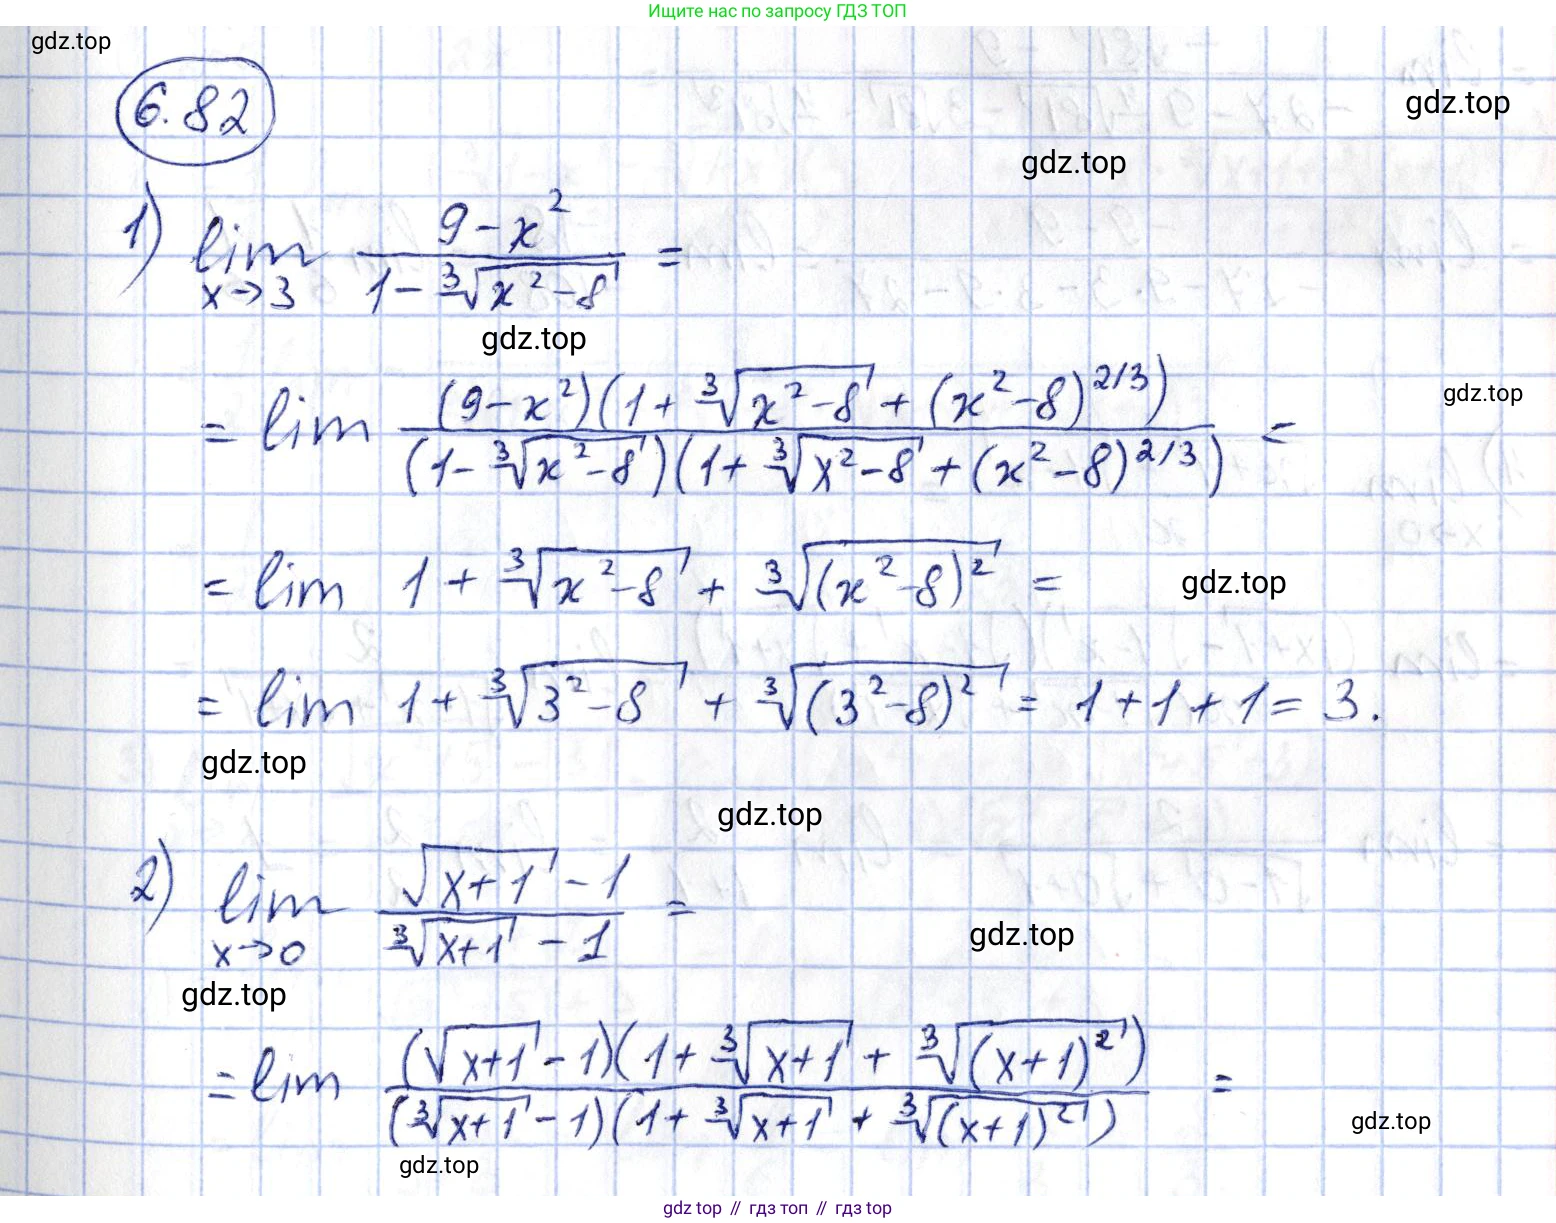 Ищите нас по запросу ГДЗ ТОП
gdz.top
6.82
gdz.top
gdz.top
1) lim x→3 (9-x²)/(1-∛(x²-8)) =
gdz.top
= lim ((9-x²)(1+∛(x²-8)+(x²-8)^(2/3)))/((1-∛(x²-8))(1+∛(x²-8)+(x²-8)^(2/3))) =
gdz.top
= lim 1+∛(x²-8)+∛((x²-8)²) =
gdz.top
= lim 1+∛(3²-8)+∛((3²-8)²) = 1+1+1 = 3.
gdz.top
gdz.top
2) lim x→0 (√(x+1)-1)/(∛(x+1)-1) =
gdz.top
gdz.top
= lim ((√(x+1)-1)(1+∛(x+1)+∛((x+1)²)))/((∛(x+1)-1)(1+∛(x+1)+∛((x+1)²))) =
gdz.top
gdz.top
gdz top // гдз топ // gdz top